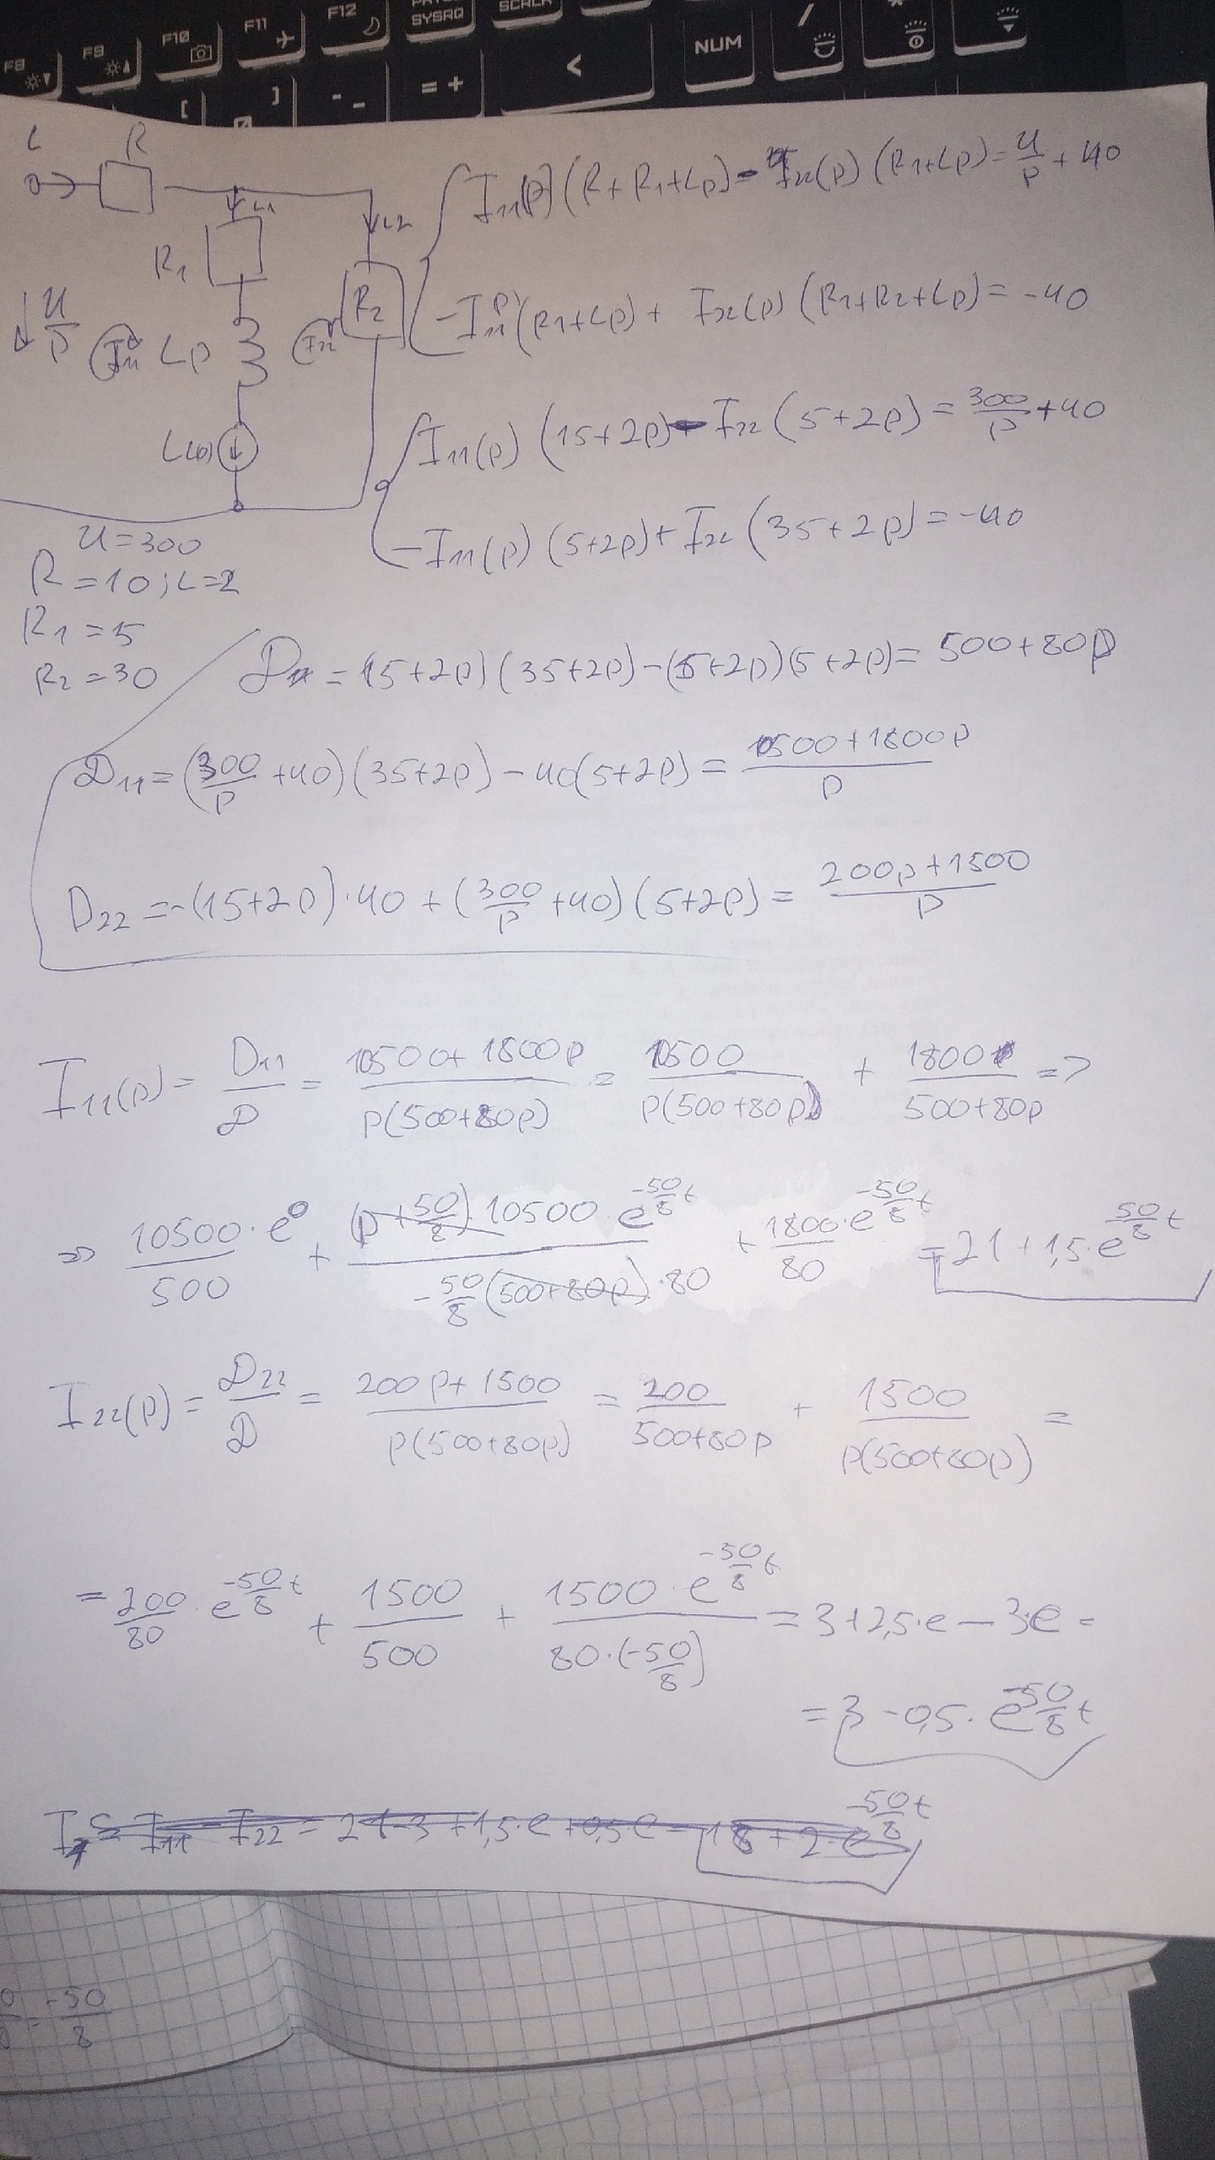 F8 F9 F10 F11 F12 SYSRQ
[ ] - _ = + < NUM / *
i R
I₁₁(p)(R+R₁+Lp) - I₂₂(p)(R₁+Lp) = U/p + 40
i1
R₁
i2
R₂
U/p
I₁₁ Lp I₂₂
-I₁₁(p)(R₁+Lp) + I₂₂(p)(R₁+R₂+Lp) = -40
I₁₁(p)(15+2p) - I₂₂(5+2p) = 300/p + 40
Li(0)
-I₁₁(p)(5+2p) + I₂₂(35+2p) = -40
U=300
R=10; L=2
R₁=5
R₂=30
D = (15+2p)(35+2p) - (5+2p)(5+2p) = 500+80p
D₁₁ = (300/p + 40)(35+2p) - 40(5+2p) = (10500+1800p)/p
D₂₂ = -(15+2p)·40 + (300/p + 40)(5+2p) = (200p+1500)/p
I₁₁(p) = D₁₁/D = (10500+1800p)/(p(500+80p)) = 10500/(p(500+80p)) + 1800/(500+80p) =>
=> (10500·e⁰)/500 + ((p+50/8) 10500 e^(-50/8 t))/(-50/8 (500+80p)·80) + (1800·e^(-50/8 t))/80 = 21+1,5·e^(50/8 t)
I₂₂(p) = D₂₂/D = (200p+1500)/(p(500+80p)) = 200/(500+80p) + 1500/(p(500+80p)) =
= 200/80 · e^(-50/8 t) + 1500/500 + (1500·e^(-50/8 t))/(80·(-50/8)) = 3+2,5·e - 3·e =
= 3 - 0,5·e^(-50/8 t)
= I₁₁ - I₂₂ = 21-3+1,5·e+0,5·e = 18+2·e^(-50/8 t)
= -50/8